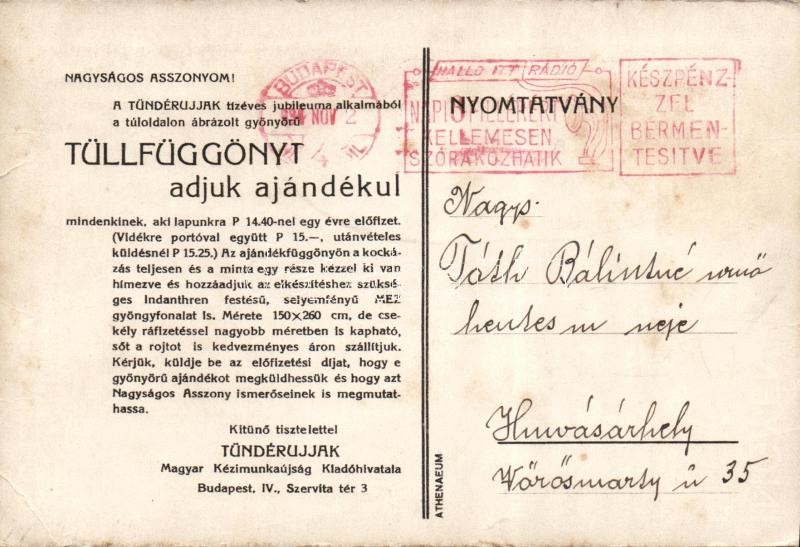 NAGYSÁGOS ASSZONYOM!
A TÜNDÉRUJJAK tizéves jubileuma alkalmából
a túloldalon ábrázolt gyönyörű
TÜLLFÜGGÖNYT
adjuk ajándékul
mindenkinek, aki lapunkra P 14.40-nel egy évre előfizet.
(Vidékre portóval együtt P 15.—, utánvételes
küldésnél P 15.25.) Az ajándékfüggönyön a kocká-
zás teljesen és a minta egy része kézzel ki van
hímezve és hozzáadjuk az elkészítéshez szüksé-
ges Indanthren festésű, selyemfényű MEZ
gyöngyfonalat is. Mérete 150×260 cm, de cse-
kély ráfizetéssel nagyobb méretben is kapható,
sőt a rojtot is kedvezményes áron szállítjuk.
Kérjük, küldje be az előfizetési díjat, hogy e
gyönyörű ajándékot megküldhessük és hogy azt
Nagyságos Asszony ismerőseinek is megmutat-
hassa.
Kitünő tisztelettel
TÜNDÉRUJJAK
Magyar Kézimunkaújság Kiadóhivatala
Budapest, IV., Szervita tér 3
ATHENAEUM
BUDAPEST
934 NOV 2
4
HALLO ITT RÁDIÓ
NAPI 8 FILLÉRÉRT
KELLEMESEN
SZÓRAKOZHATIK
KÉSZPÉNZ-
ZEL
BÉRMEN-
TESITVE
NYOMTATVÁNY
Nagys.
Tóth Bálintné urnő
hentes m neje
Hmvásárhely
Vörösmarty u 35